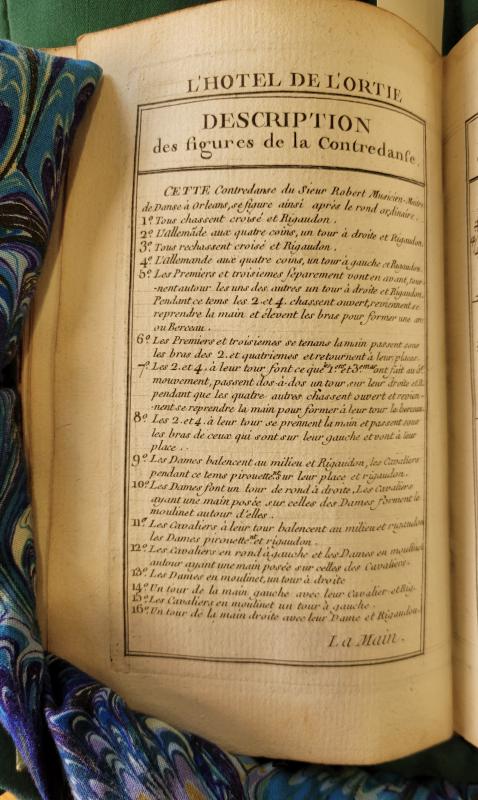 L'HOTEL DE L'ORTIE
DESCRIPTION
des figures de la Contredanse.
CETTE Contredanse du Sieur Robert Musicien-Maitre
de Danse à Orleans, se figure ainsi après le rond ordinaire.
1º. Tous chassent croisé et Rigaudon.
2º. L'allemande aux quatre coins, un tour à droite et Rigaudon.
3º. Tous rechassent croisé et Rigaudon.
4º. L'Allemande aux quatre coins, un tour à gauche et Rigaudon.
5º. Les Premiers et troisiemes séparement vont en avant, tour-
-nent autour les uns des autres un tour à droite et Rigaudon.
Pendant ce tems les 2. et 4. chassent ouvert, reviennent se
reprendre la main et élevent les bras pour former une arc
ou Berceau.
6º. Les Premiers et troisiemes se tenans la main passent sous
les bras des 2. et quatriemes et retournent à leur places.
7º. Les 2. et 4. à leur tour font ce que les 1ers et 3emes ont fait au 5e
mouvement, passent dos-à-dos un tour sur leur droite et R.
pendant que les quatre autres chassent ouvert et revien-
-nent se reprendre la main pour former à leur tour le berceau.
8º. Les 2. et 4. à leur tour se prennent la main et passent sous
les bras de ceux qui sont sur leur gauche et vont à leur
place.
9º. Les Dames balencent au milieu et Rigaudon, les Cavaliers
pendant ce tems pirouettent sur leur place et rigaudon.
10º. Les Dames font un tour de rond à droite, Les Cavaliers
ayant une main posée sur celles des Dames forment le
moulinet autour d'elles.
11º. Les Cavaliers à leur tour balencent au milieu et rigaudon
les Dames pirouettent et rigaudon.
12º. Les Cavaliers en rond à gauche et les Dames en moulinet
autour ayant une main posée sur celles des Cavaliers.
13º. Les Dames en moulinet, un tour à droite
14º. Un tour de la main gauche avec leur Cavalier et Rig.
15º. Les Cavaliers en moulinet un tour à gauche.
16º. Un tour de la main droite avec leur Dame et Rigaudon.
La Main.